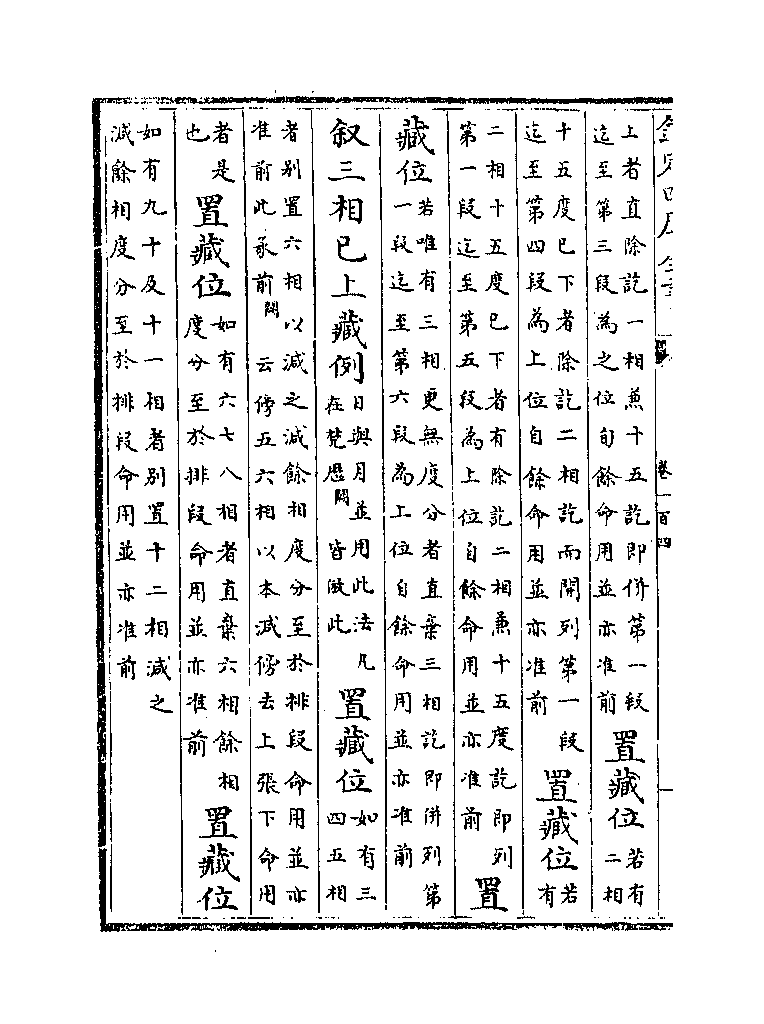 欽定四庫全書 卷一百四
上者直除訖一相兼十五訖即併第一段迄至第三段為之位旬餘命用並亦准前置藏位若有二相
十五度已下者除訖二相訖而開列第一段迄至第四段為上位自餘命用並亦准前置藏位若有
二相十五度已下者有除訖二相兼十五度訖即列第一段迄至第五段為上位自餘命用並亦准前置
藏位若唯有三相更無度分者直棄三相訖即併列第一段迄至第六段為上位自餘命用並亦准前
叙三相已上藏例日與月並用此法凡在梵歴闕皆倣此置藏位如有三四五相
者别置六相以減之減餘相度分至於排段命用並亦准前此承前闕云傍五六相以本減傍去上張下命用
者是也置藏位如有六七八相者直棄六相餘相度分至於排段命用並亦准前置藏位
如有九十及十一相者别置十二相減之減餘相度分至於排段命用並亦准前